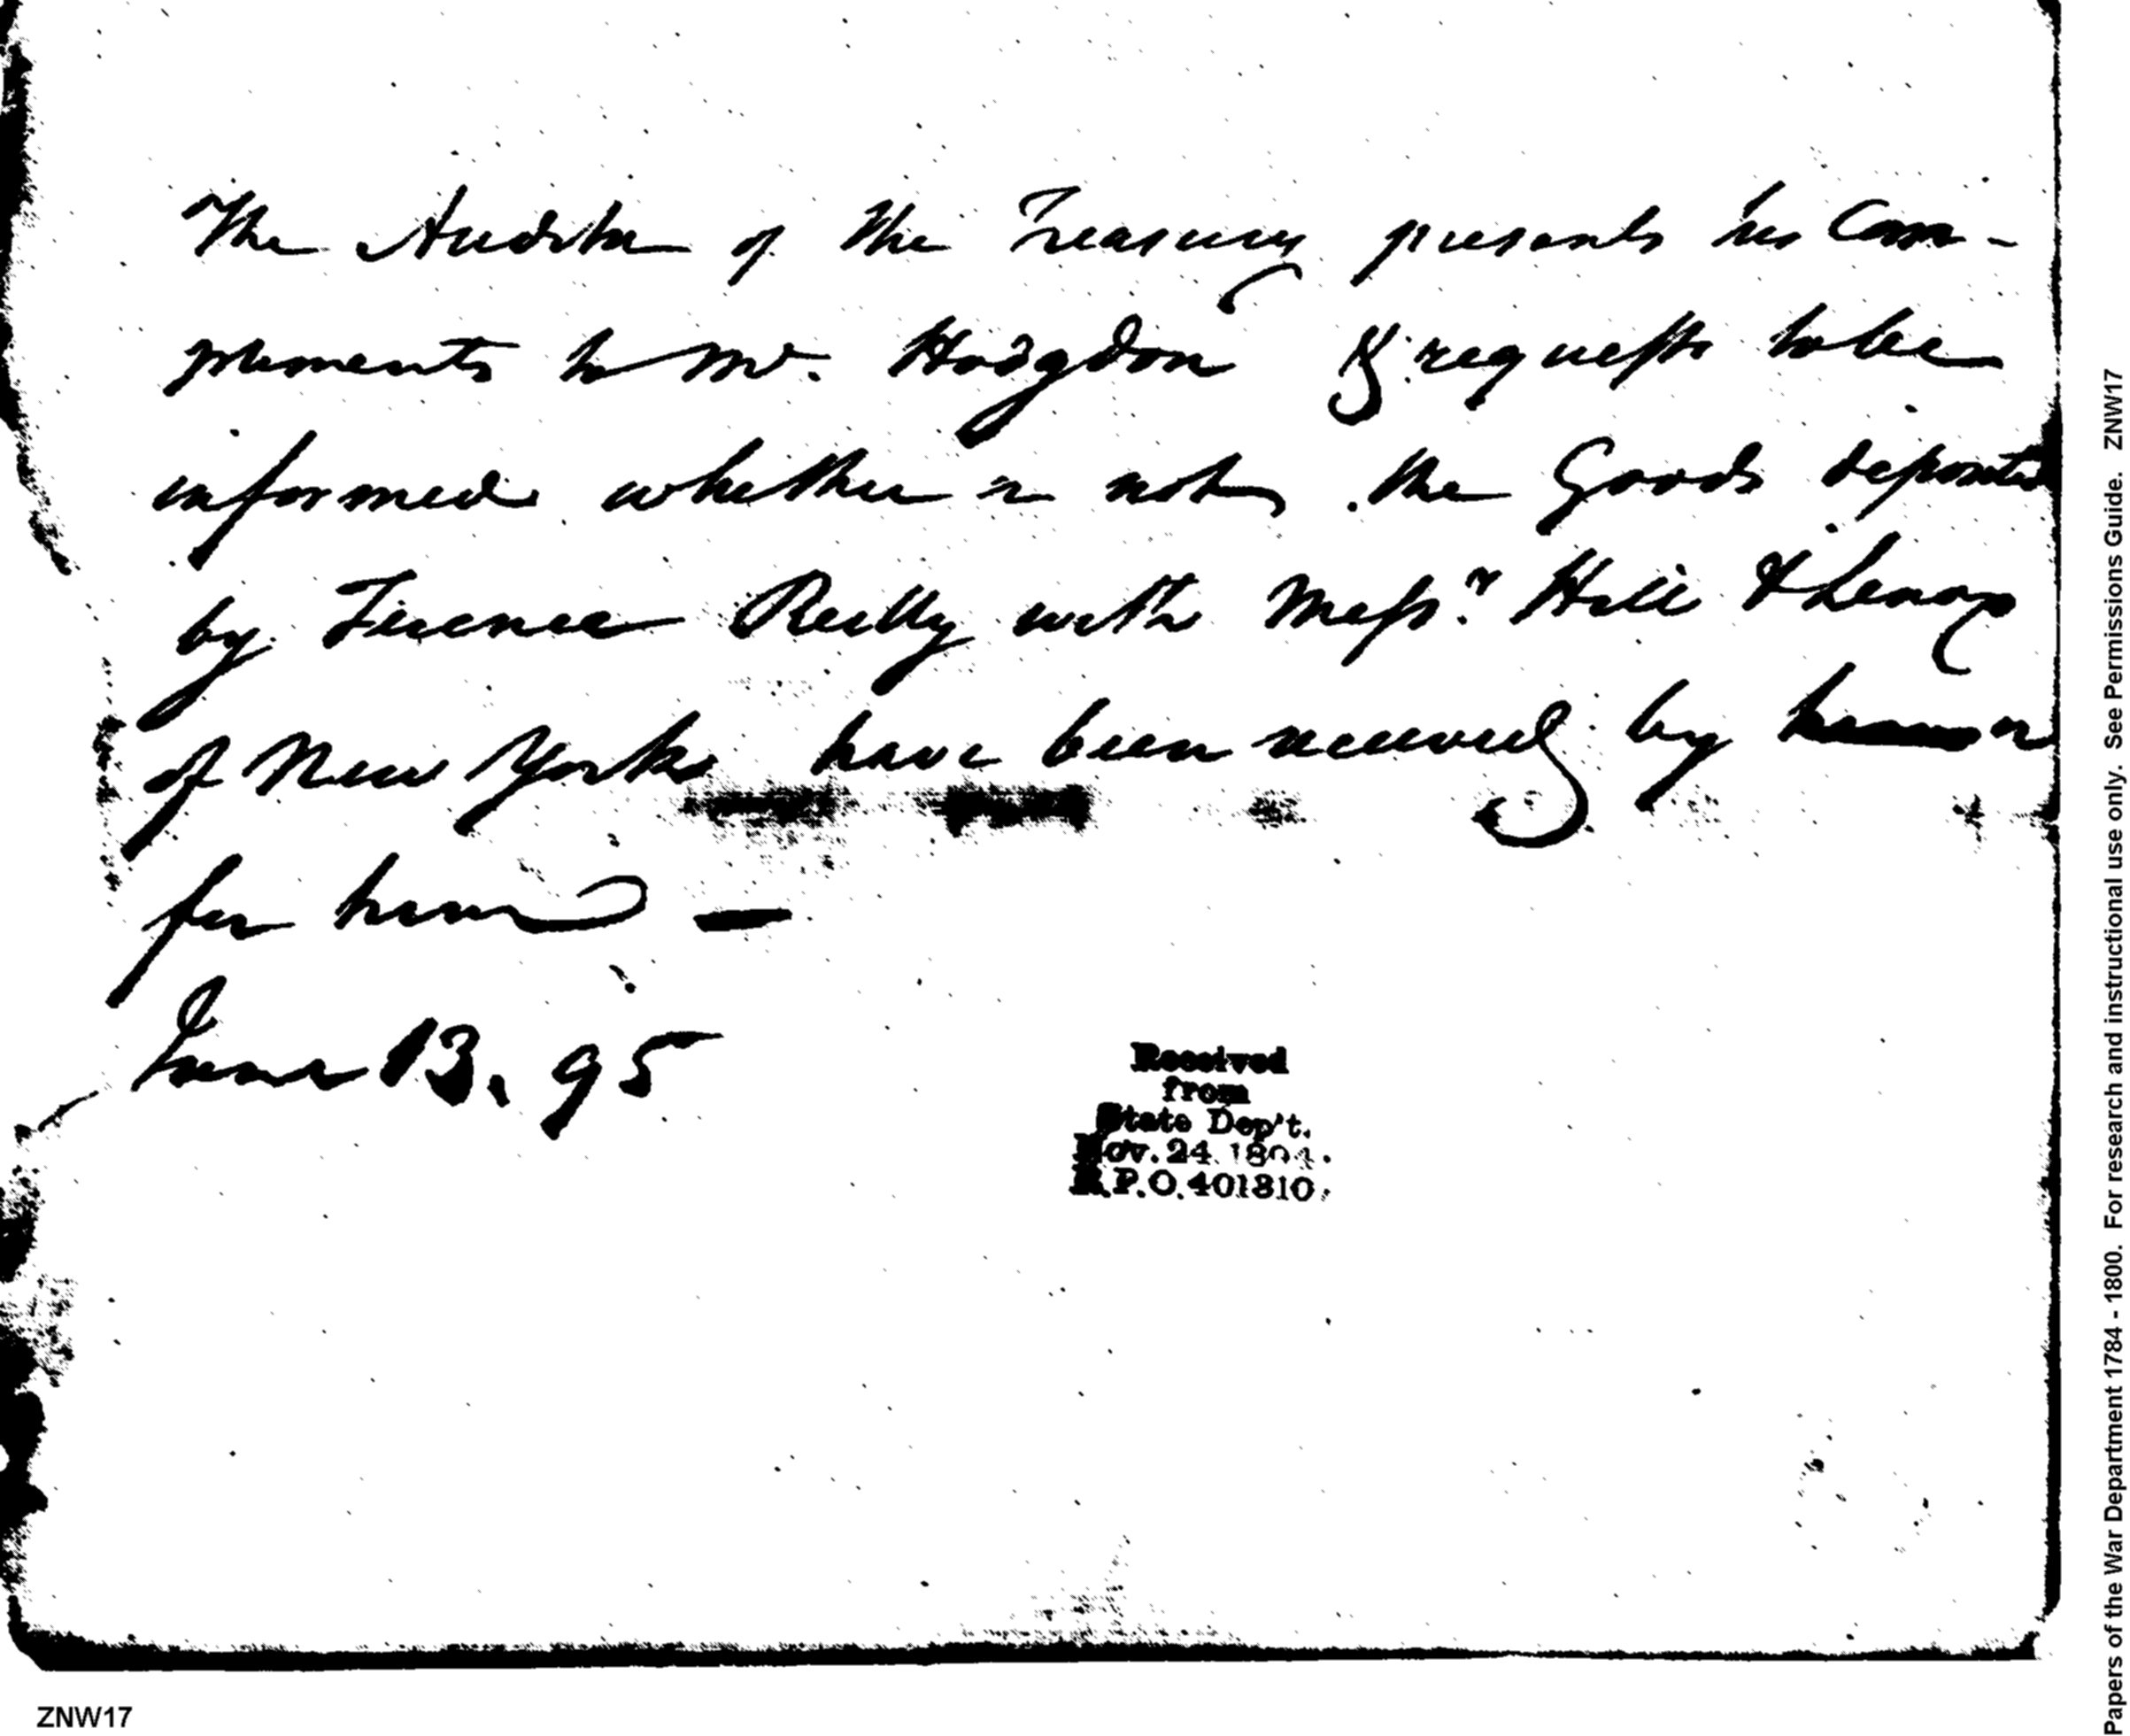 The Auditor of the Treasury presents his Com-
pliments to Mr. Hodgdon & requests to be
informed whether or not the Goods deposited
by Terence Reilly with Messrs Hill &
of New York have been received by him or
for him —
June 13. 95
Received
from
State Dep't.
Nov. 24 
R.P.O. 401310.
ZNW17
Papers of the War Department 1784 - 1800. For research and instructional use only. See Permissions Guide. ZNW17